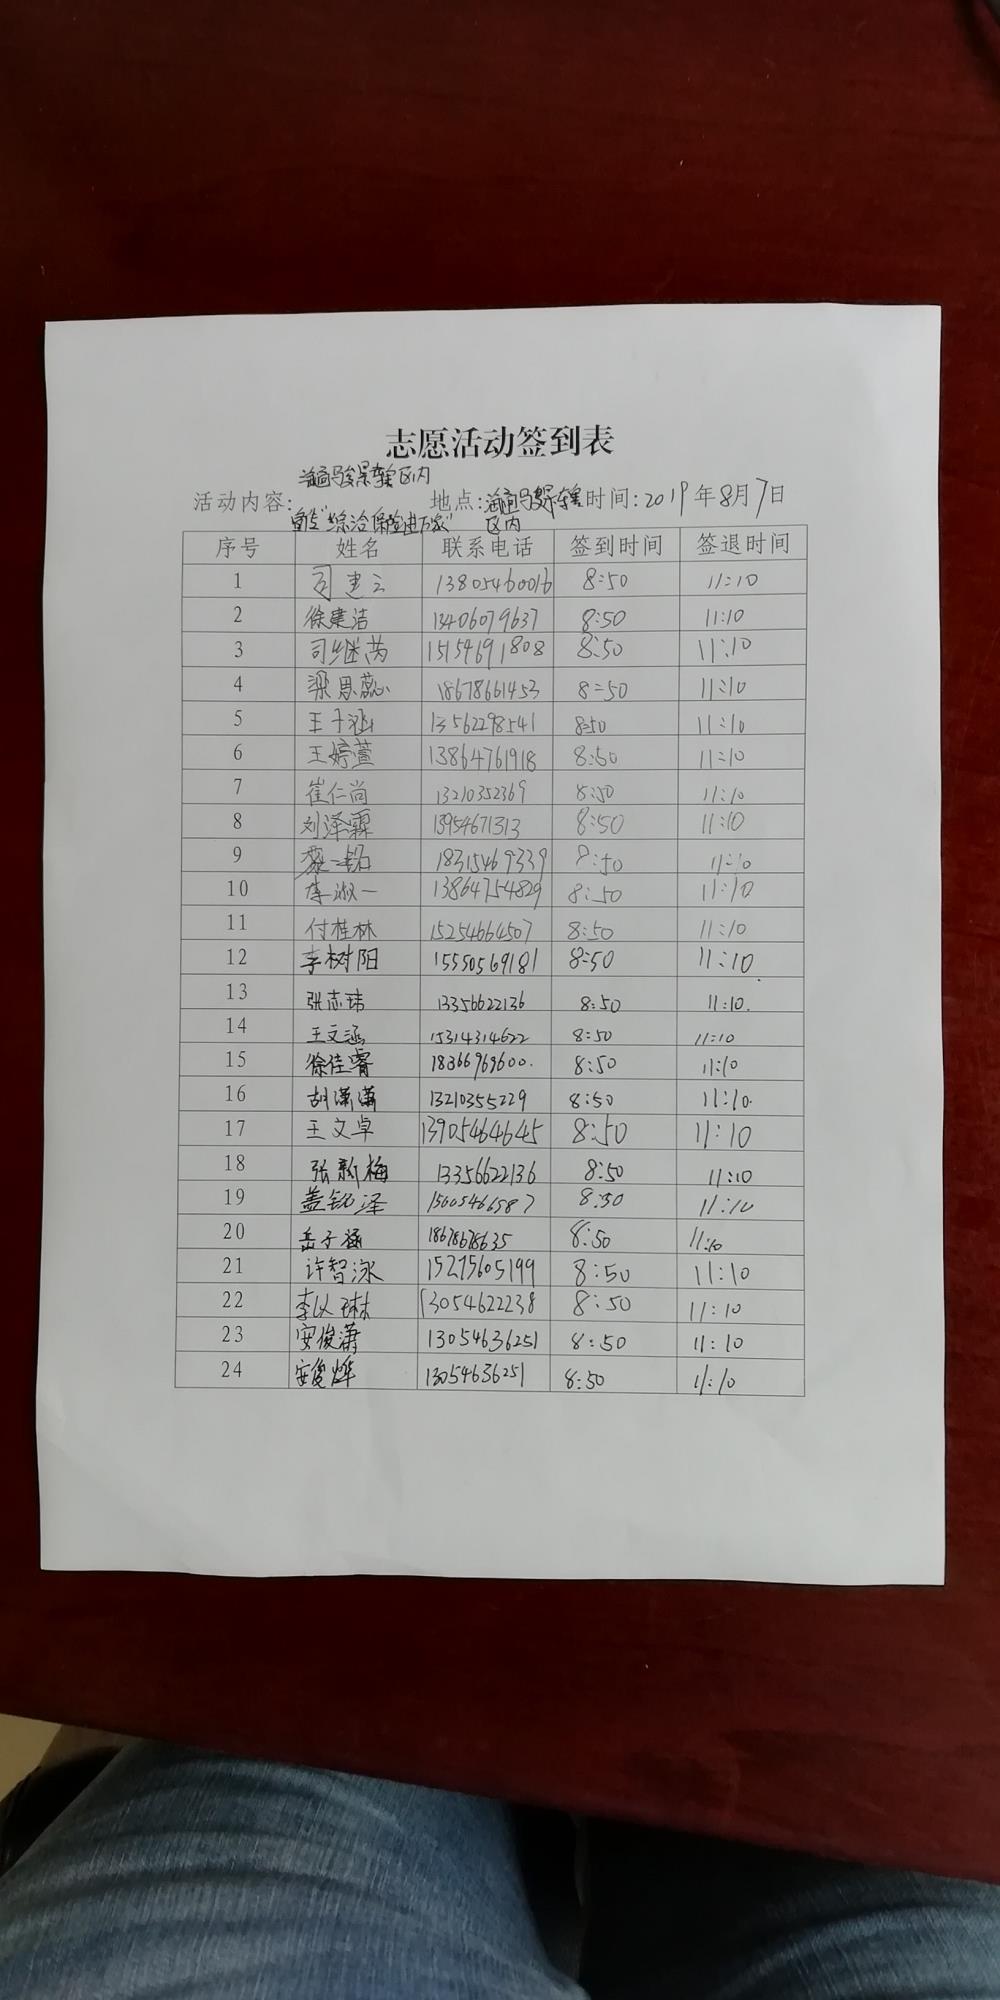 志愿活动签到表
辖区内
活动内容: 宣传"综治保险进万家" 地点: 辖区内 时间:2019年8月7日
序号 姓名 联系电话 签到时间 签退时间
1 司建云 13805460016 8:50 11:10
2 徐建洁 13406079637 8:50 11:10
3 司继芮 15154691808 8:50 11:10
4 梁思蕊 18678661453 8:50 11:10
5 王子涵 13562298541 8:50 11:10
6 王婷萱 13864761918 8:50 11:10
7 崔仁尚 13210352369 8:50 11:10
8 刘泽霖 13954671313 8:50 11:10
9 18315469339 8:50 11:10
10 李淑一 13864754829 8:50 11:10
11 付桂林 15254664507 8:50 11:10
12 李树阳 15550569181 8:50 11:10
13 张志玮 13356622136 8:50 11:10.
14 王文涵 15314314622 8:50 11:10
15 徐佳睿 18366969600. 8:50 11:10
16 胡潇潇 13210355229 8:50 11:10.
17 王文卓 13905464645 8:50 11:10
18 张新梅 13356622136 8:50 11:10
19 盖铭泽 15605466587 8:50 11:10
20 岳子涵 18678678635 8:50 11:10
21 许智泳 15275605199 8:50 11:10
22 李以琳 13054622238 8:50 11:10
23 安俊潇 13054636251 8:50 11:10
24 安俊烨 13054636251 8:50 11:10